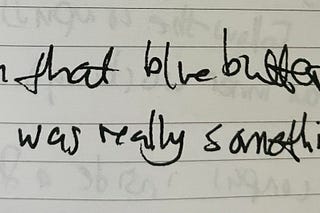 n that blue butter
was really somethi